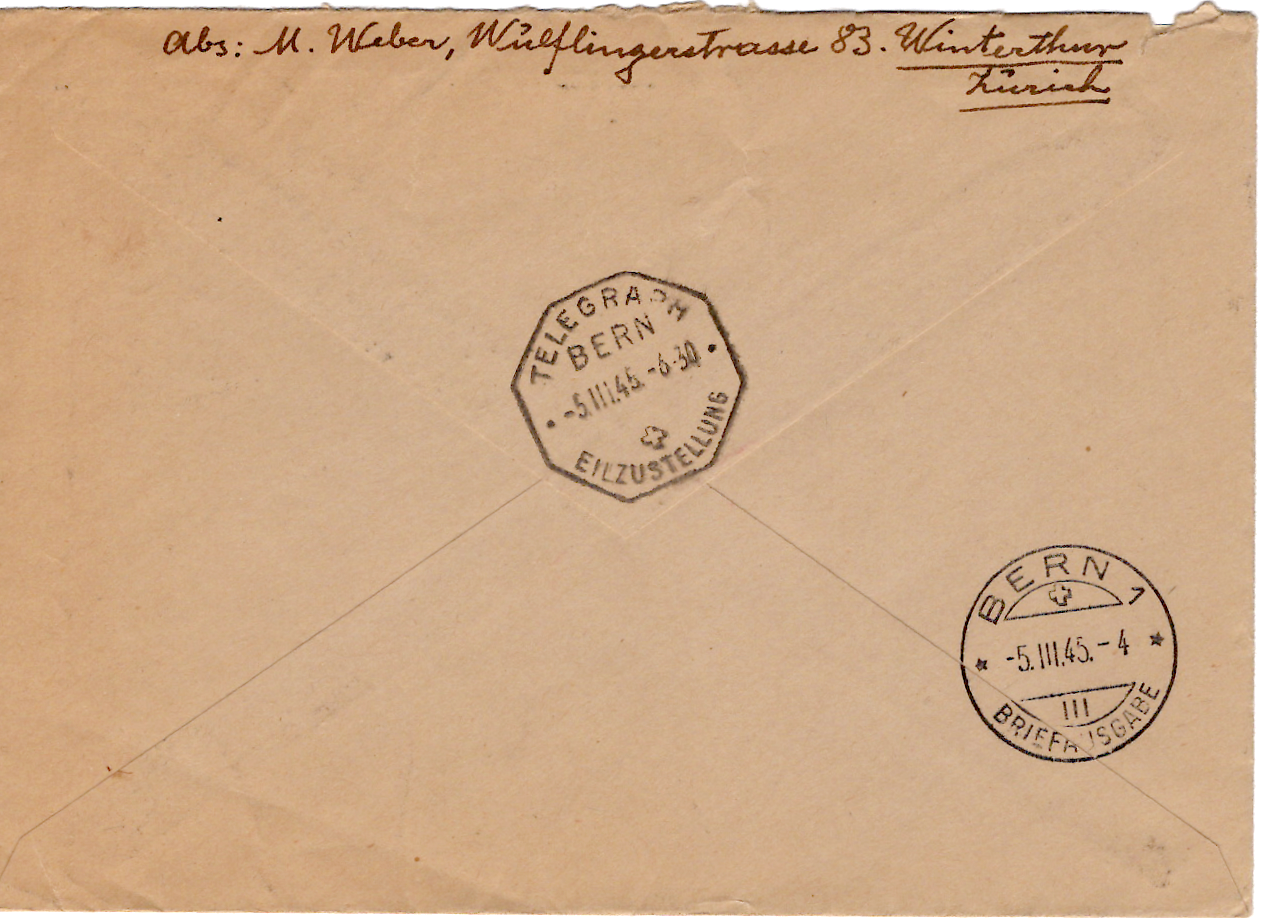 Abs: M. Weber, Wülflingerstrasse 83. Winterthur
Zürich
TELEGRAPH
BERN
-5.III.45.-6·30
EILZUSTELLUNG
BERN 1
-5.III.45.-4
III
BRIEFAUSGABE